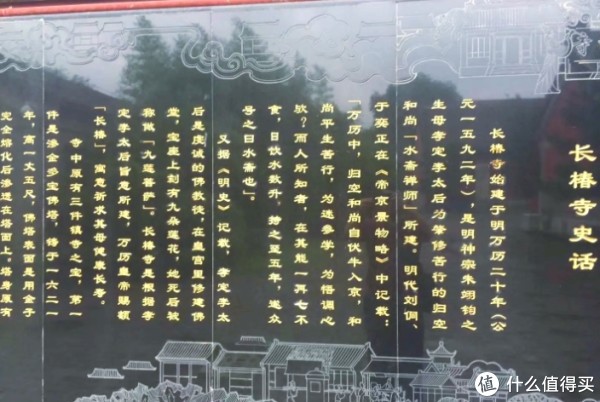 长椿寺史话
长椿寺始建于明万历二十年（公
元一五九二年），是明神宗朱翊钧之
生母孝定李太后为肇修苦行的归空
和尚「水斋禅师」所建。明代刘侗、
于奕正在《帝京景物略》中记载：
「万历中，归空和尚自伏牛入京，和
尚平生苦行，为迷参学，为悟调心
欤？而人所知者，在其能一再七不
食，日饮水数升，持之至五年，遂众
号之曰水斋也」。
又据《明史》记载，孝定李太
后是虔诚的佛教徒，在皇宫里修建佛
堂，宝座上刻有九朵莲花，她死后被
称做「九莲菩萨」。长椿寺是根据孝
定李太后旨意所建，万历皇帝赐额
「长椿」，寓意祈求其母健康长寿。
寺中原有三件镇寺之宝，第一
件是渗金多宝佛塔，铸于一六二一
年，高一丈五尺，佛塔表面是用金子
完全熔化后渗透在塔面上，塔身原有
值 什么值得买